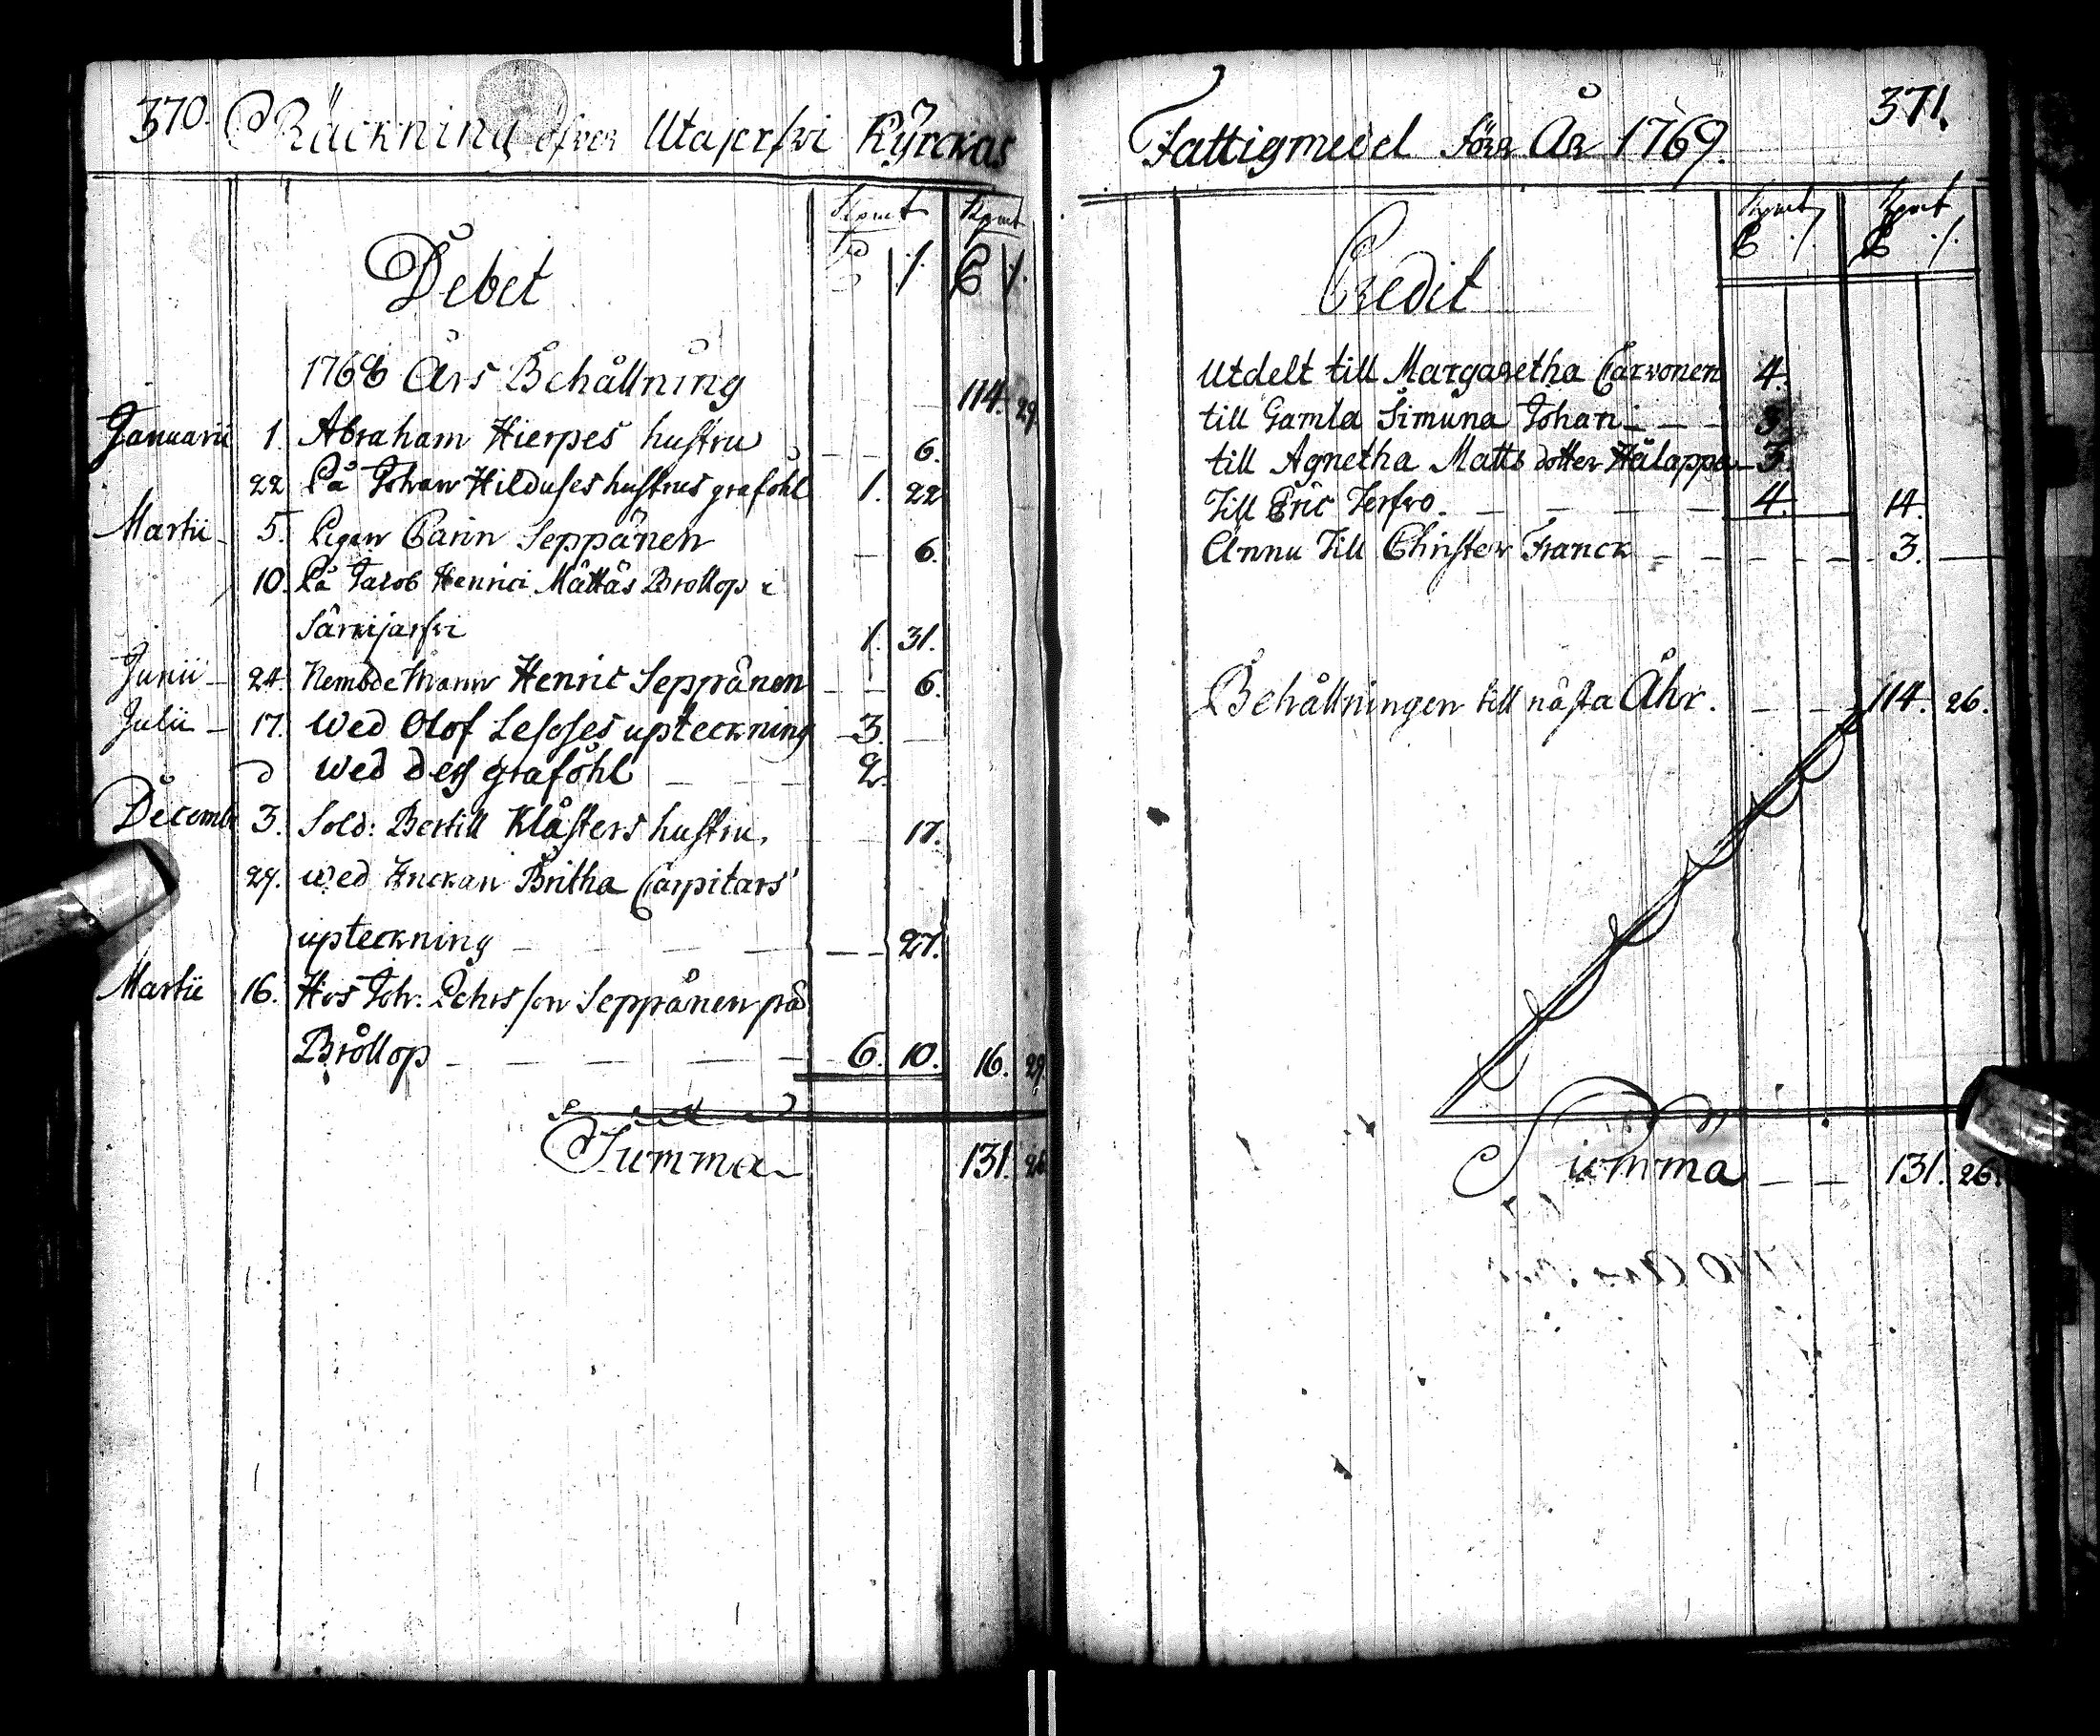 370. Räckning öfver Utajerfwi Kyrckas
Kpmt Kpmt
Debet
1768 Års Behållning 114. 29.
Januarii 1. Abraham Hierpes hustru — — 6.
22 På Johan Hilduses hustrus graföhl 1. 22
Martii 5. Pigan Carin Seppänen — 6.
10. På Jacob Henrici Måttås Bröllop i
Särkijärfwi 1. 31.
Junii 24. Nembdeman Henric Seppänen — — 6.
Julii 17. Wed Olof Lesoses upteckning 3. —
D wed dess graföhl — — 2.
Decembr 3. Sold: Bertill Klåsters hustru. — — 17.
29. wed Enckan Britha Carpitars
upteckning — — — — 27.
Martii 16. Hos Joh: Pehrsson Seppänen på
Bröllop — — — — 6. 10. 16. 29
Summa 131. 26
Fattigmedel förr År 1769. 371.
Kpmt Kpmt
Credit
Utdelt till Margaretha Carvonen 4.
till Gamla Simuna Johan — — — 3.
till Agnetha Matts dotter Hålappa — 3.
Till Eric Jerfwo. — — — — 4. 14.
Ännu Till Christer Franck — — — — — 3. —
Behållningen till nästa Åhr. — — 114. 26.
Summa — — 131. 26.